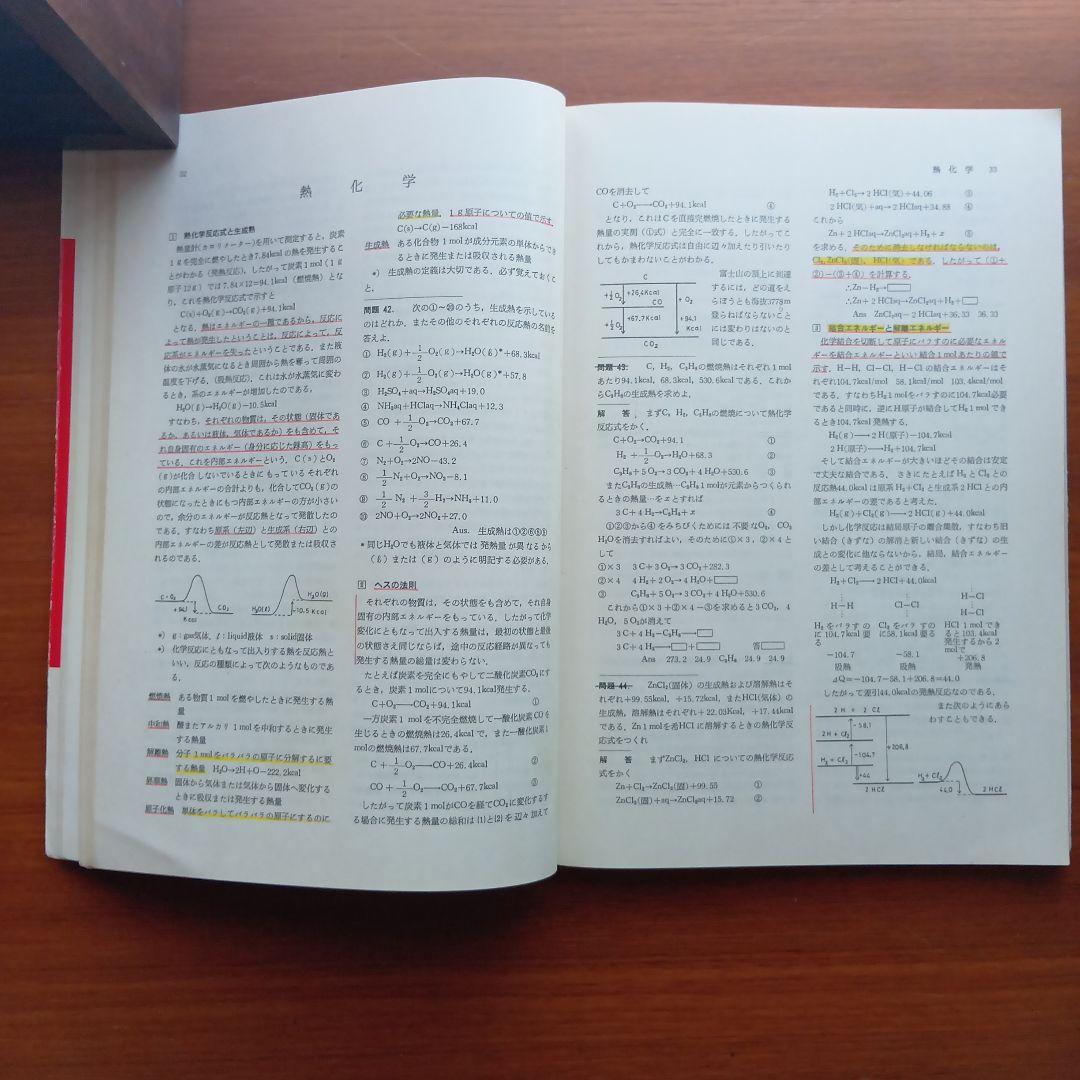 32
熱 化 学
1 熱化学反応式と生成熱
熱量計(カロリメーター)を用いて測定すると，炭素
1gを完全に燃やしたとき7.84kcalの熱を発生するこ
とがわかる（発熱反応)，したがって炭素1mol(1g
原子12g）では7.84×12=94.1kcal（燃焼熱）とな
り，これを熱化学反応式で示すと
C(s)+O₂(g)→CO₂(g)+94.1kcal
となる，熱はエネルギーの一種であるから，反応に
よって熱が発生したということは，反応によって，反
応系がエネルギーを失ったということである．また液
体の水が水蒸気になるとき周囲から熱を奪って周囲の
温度を下げる．(吸熱反応)．これは水が水蒸気に変わ
るとき，系のエネルギーが増加したのである．
H₂O(ℓ)→H₂O(g)−10.5kcal
すなわち，それぞれの物質は，その状態（固体であ
るか，あるいは液体，気体であるか）をも含めて，それ
ぞれ自身固有のエネルギー（身分に応じた録高）をもっ
ている．これを内部エネルギーという．C(s)とO₂
(g)が化合しないでいるときにもっているそれぞれ
の内部エネルギーの合計よりも，化合してCO₂(g)の
状態になったときにもつ内部エネルギーの方が小さい
ので，余分のエネルギーが反応熱となって発散したの
である．すなわち原系（左辺）と生成系（右辺）との
内部エネルギーの差が反応熱として発散または吸収さ
れるのである．
C+O₂ +94.1 Kcal CO₂ H₂O(ℓ) H₂O(g) −10.5 Kcal
*) g:gas気体，ℓ:liquid液体 s:solid固体
*) 化学反応にともなって出入りする熱を反応熱と
いい，反応の種類によって次のようなものであ
る．
燃焼熱 ある物質1molを燃やしたときに発生する熱
量
中和熱 酸またアルカリ1molを中和するときに発生
する熱量
解離熱 分子1molをバラバラの原子に分解するに要
する熱量 H₂O→2H+O−222.2kcal
昇華熱 固体から気体または気体から固体へ変化する
ときに吸収または発生する熱量
原子化熱 単体をバラしてバラバラの原子にするのに
必要な熱量，1g原子についての値で示す．
C(s)→C(g)−168kcal
生成熱 ある化合物1molが成分元素の単体からでき
るときに発生または吸収される熱量
*) 生成熱の定義は大切である．必ず覚えておくこ
と．
問題 42. 次の①〜⑩のうち，生成熱を示している
のはどれか，またその他のそれぞれの反応熱の名前を
答えよ．
① H₂(g)+1/2O₂(g)→H₂O(ℓ)*+68.3kcal
② H₂(g)+1/2O₂(g)→H₂O(g)*+57.8
③ H₂SO₄+aq→H₂SO₄aq+19.0
④ NH₃aq+HClaq→NH₄Claq+12.3
⑤ CO+1/2O₂→CO₂+67.7
⑥ C+1/2O₂→CO+26.4
⑦ N₂+O₂→2NO−43.2
⑧ 1/2N₂+O₂→NO₂−8.1
⑨ 1/2N₂+3/2H₂→NH₃+11.0
⑩ 2NO+O₂→2NO₂+27.0
*同じH₂Oでも液体と気体では発熱量が異なるから
(ℓ)または(g)のように明記する必要がある．
2 ヘスの法則
それぞれの物質は，その状態をも含めて，それ自身
固有の内部エネルギーをもっている．したがって化学
変化にともなって出入する熱量は，最初の状態と最後
の状態さえ同じならば，途中の反応経路が異なっても
発生する熱量の総量は変わらない．
たとえば炭素を完全にもやして二酸化炭素CO₂にす
るとき，炭素1molについて94.1kcal発生する．
C+O₂→CO₂+94.1kcal ①
一方炭素1molを不完全燃焼して一酸化炭素COを
生じるときの燃焼熱は26.4kcalで，また一酸化炭素1
molの燃焼熱は67.7kcalである．
C+1/2O₂→CO+26.4kcal ②
CO+1/2O₂→CO₂+67.7kcal ③
したがって炭素1molがCOを経てCO₂に変化するす
る場合に発生する熱量の総和は(1)と(2)を辺々加えて
熱 化 学 33
COを消去して
C+O₂→CO₂+94.1kcal ④
となり，これはCを直接完燃焼したときに発生する
熱量の実測（①式）と完全に一致する．したがってこ
れから，熱化学反応式は自由に辺々加えたり引いたり
してもかまわないことがわかる．
C
+½O₂ +26.4Kcal CO +O₂
+½O₂ +67.7Kcal +94.1 Kcal
CO₂
富士山の頂上に到達
するには，どの道をえ
らぼうとも海抜3778m
登らねばならないこと
には変わりはないのと
同じである．
問題 43. C，H₂，C₃H₈の燃焼熱はそれぞれ1mol
あたり94.1kcal，68.3kcal，530.6kcalである．これか
らC₃H₈の生成熱を求めよ．
解 答 ．まずC，H₂，C₃H₈の燃焼について熱化学
反応式をかく．
C+O₂→CO₂+94.1 ①
H₂+1/2O₂→H₂O+68.3 ②
C₃H₈+5O₂→3CO₂+4H₂O+530.6 ③
またC₃H₈の生成熱…C₃H₈1molが元素からつくられ
るときの熱量…をxとすれば
3C+4H₂→C₃H₈+x ④
①②③から④をみちびくためには不要なO₂，CO₂
H₂Oを消去すればよい，そのために①×3，②×4と
して
①×3 3C+3O₂→3CO₂+282.3
②×4 4H₂+2O₂→4H₂O+
③ C₃H₈+5O₂→3CO₂+4H₂O+530.6
これから①×3+②×4−③を求めると3CO₂，4
H₂O，5O₂が消えて
3C+4H₂−C₃H₈→
3C+4H₂→+ 答
Ans 273.2 24.9 C₃H₈ 24.9 24.9
問題 44. ZnCl₂(固体）の生成熱および溶解熱はそ
れぞれ+99.55kcal，+15.72kcal，またHCl(気体）の
生成熱，溶解熱はそれぞれ+22.03Kcal，+17.44kcal
である．Zn1molを希HClに溶解するときの熱化学反
応式をつくれ
解 答 まずZnCl₂，HClについての熱化学反応
式をかく
Zn+Cl₂→ZnCl₂(固)+99.55 ①
ZnCl₂(固)+aq→ZnCl₂aq+15.72 ②
H₂+Cl₂→2HCl(気)+44.06 ③
2HCl(気)+aq→2HClaq+34.88 ④
これから
Zn+2HClaq→ZnCl₂aq+H₂+x ⑤
を求める．そのために消去しなければならないのは，
Cl₂，ZnCl₂(固)，HCl(気)である．したがって（①+
②)−(③+④）を計算する．
∴Zn−H₂→
∴Zn+2HClaq→ZnCl₂aq+H₂+
Ans ZnCl₂aq−2HClaq+36.33 36.33
3 結合エネルギーと解離エネルギー
化学結合を切断して原子にバラすのに必要なエネル
ギーを結合エネルギーといい結合1molあたりの値で
示す．H−H，Cl−Cl，H−Clの結合エネルギーはそ
れぞれ104.7kcal/mol 58.1kcal/mol 103.4kcal/mol
である．すなわちH₂1molをバラすのに104.7kcal必要
であると同時に，逆にH原子が結合してH₂1molでき
るとき104.7kcal発熱する．
H₂(g)→2H(原子)−104.7kcal
2H(原子)→H₂+104.7kcal
そして結合エネルギーが大きいほどその結合は安定
で丈夫な結合である．さきにたとえばH₂とCl₂との
反応熱44.0kcalは原系H₂+Cl₂と生成系2HClとの内
部エネルギーの差であると考えた．
H₂(g)+Cl₂(g)→2HCl(g)+44.0kcal
しかし化学反応は結局原子の離合集散，すなわち旧
い結合（きずな）の解消と新しい結合（きずな）の生
成との変化に他ならないから，結局，結合エネルギー
の差として考えることができる．
H₂+Cl₂→2HCl+44.0kcal
H−H Cl−Cl H−Cl H−Cl
H₂をバラすの
に104.7kcal要
る
−104.7
吸熱
Cl₂をバラすの
に58.1kcal要る
−58.1
吸熱
HCl 1molでき
ると103.4kcal
発生するから2
molで
+206.8
発熱
⊿Q=−104.7−58.1+206.8=44.0
したがって差引44.0kcalの発熱反応なのである．
2H+2Cl
−58.1
2H+Cl₂
−104.7
H₂+Cl₂
+44
+206.8
2HCl
また次のようにあら
わすこともできる．
H₂+Cl₂
44.0
2HCl